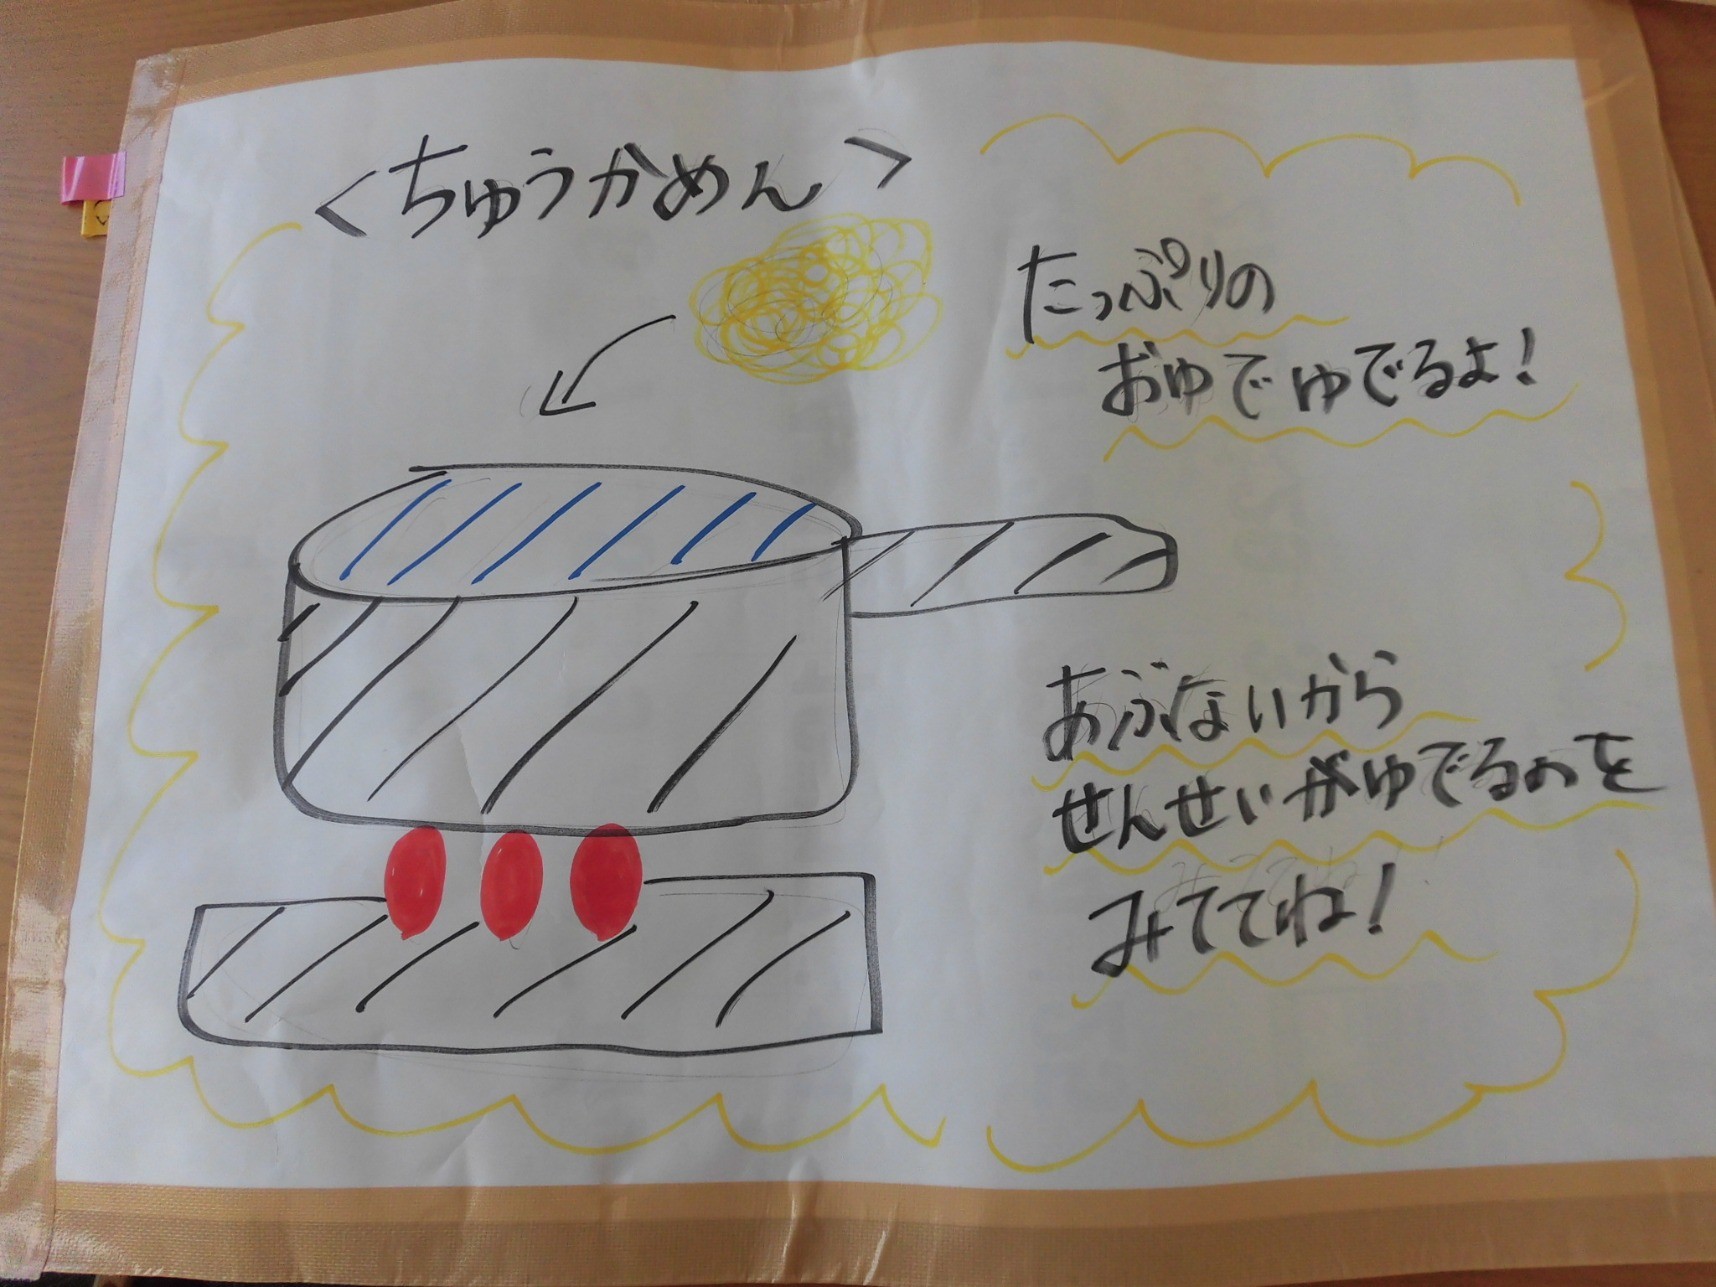 <ちゅうかめん>
たっぷりの
おゆでゆでるよ!
あぶないから
せんせいがゆでるのを
みててね!